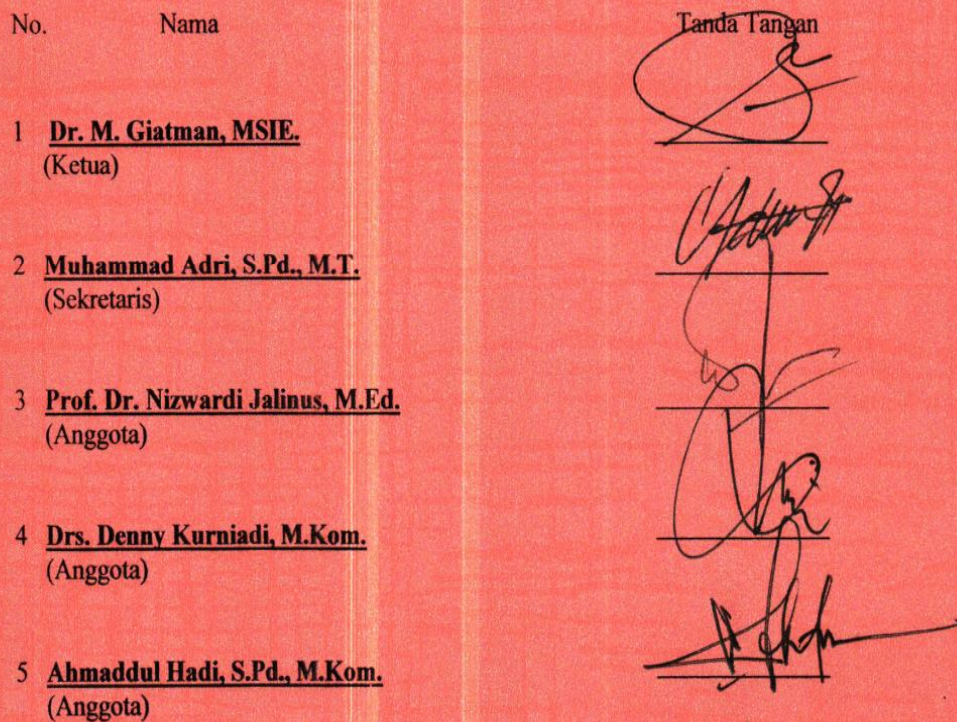 No. Nama Tanda Tangan
1 Dr. M. Giatman, MSIE.
(Ketua)
2 Muhammad Adri, S.Pd., M.T.
(Sekretaris)
3 Prof. Dr. Nizwardi Jalinus, M.Ed.
(Anggota)
4 Drs. Denny Kurniadi, M.Kom.
(Anggota)
5 Ahmaddul Hadi, S.Pd., M.Kom.
(Anggota)